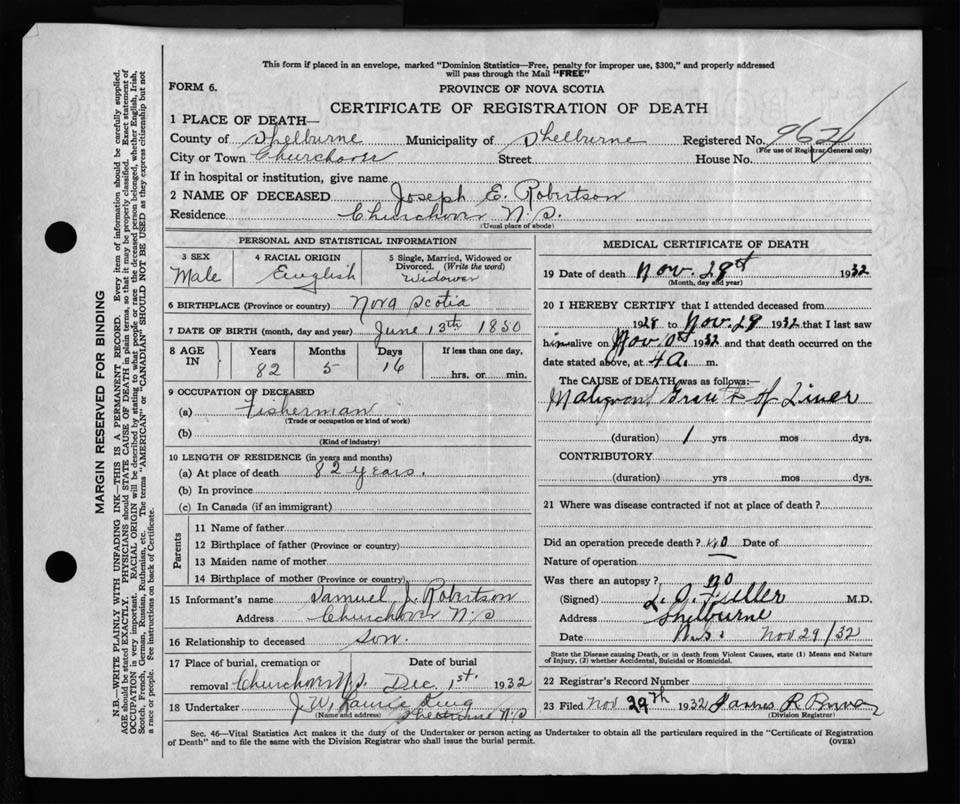 This form if placed in an envelope, marked "Dominion Statistics—Free, penalty for improper use, $300," and properly addressed
will pass through the Mail "FREE"
FORM 6.
PROVINCE OF NOVA SCOTIA
CERTIFICATE OF REGISTRATION OF DEATH
1 PLACE OF DEATH—
County of Shelburne Municipality of Shelburne Registered No.
(For use of Registrar General only)
City or Town Churchover Street House No.
If in hospital or institution, give name
2 NAME OF DECEASED Joseph E. Robertson
Residence Churchover N.S.
(Usual place of abode)
PERSONAL AND STATISTICAL INFORMATION
3 SEX
Male
4 RACIAL ORIGIN
English
5 Single, Married, Widowed or
Divorced. (Write the word)
Widower
6 BIRTHPLACE (Province or country) Nova Scotia
7 DATE OF BIRTH (month, day and year) June 13th 1850
8 AGE IN
Years Months Days If less than one day,
82 5 16 hrs. or min.
9 OCCUPATION OF DECEASED
(a) Fisherman
(Trade or occupation or kind of work)
(b)
(Kind of industry)
10 LENGTH OF RESIDENCE (in years and months)
(a) At place of death 82 years.
(b) In province
(c) In Canada (if an immigrant)
Parents
11 Name of father
12 Birthplace of father (Province or country)
13 Maiden name of mother
14 Birthplace of mother (Province or country)
15 Informant's name Samuel J. Robertson
Address Churchover N.S
16 Relationship to deceased son.
17 Place of burial, cremation or Date of burial
removal Churchover N.S. Dec. 1st. 1932
18 Undertaker J. W.
(Name and address) Shelburne N.S
MEDICAL CERTIFICATE OF DEATH
19 Date of death Nov. 29th 1932
(Month, day and year)
20 I HEREBY CERTIFY that I attended deceased from
1928 to Nov. 29 1932 that I last saw
him alive on Nov 1932 and that death occurred on the
date stated above, at 4 a. m.
The CAUSE of DEATH was as follows:—
Malignant Growth of Liver
(duration) 1 yrs mos dys.
CONTRIBUTORY
(duration) yrs mos dys.
21 Where was disease contracted if not at place of death?
Did an operation precede death? no Date of
Nature of operation
Was there an autopsy? no
(Signed) L. O. Fuller M.D.
Address Shelburne
Date N.S. Nov 29/32
State the Disease causing Death, or in death from Violent Causes, state (1) Means and Nature
of Injury, (2) whether Accidental, Suicidal or Homicidal.
22 Registrar's Record Number
23 Filed Nov 29th 1932 James R
(Division Registrar)
Sec. 46—Vital Statistics Act makes it the duty of the Undertaker or person acting as Undertaker to obtain all the particulars required in the "Certificate of Registration
of Death" and to file the same with the Division Registrar who shall issue the burial permit.
(OVER)
MARGIN RESERVED FOR BINDING
N.B.—WRITE PLAINLY WITH UNFADING INK—THIS IS A PERMANENT RECORD. Every item of information should be carefully supplied.
AGE should be stated EXACTLY. PHYSICIANS should STATE CAUSE OF DEATH in plain terms, so that it may be properly classified. Exact statement of
OCCUPATION is very important. RACIAL ORIGIN will be described by stating to what people or race the deceased person belonged, whether English, Irish,
Scotch, French, German, Russian, Ruthenian, etc. The terms "AMERICAN" or "CANADIAN" SHOULD NOT BE USED as they express citizenship but not
a race or people. See instructions on back of Certificate.